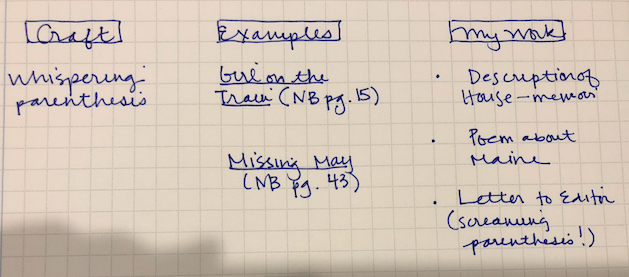 Craft
Examples
My Work
Whispering
parenthesis
Girl on the
Train (NB pg. 15)
Missing May
(NB pg. 43)
• Description of
House - memoir
• Poem about
Maine
• Letter to Editor
(screaming
parenthesis!)